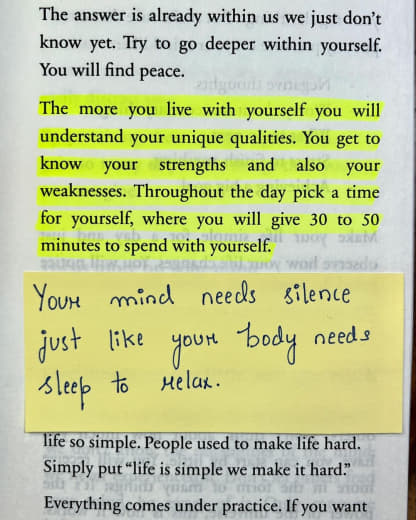 The answer is already within us we just don't
know yet. Try to go deeper within yourself.
You will find peace.
The more you live with yourself you will
understand your unique qualities. You get to
know your strengths and also your
weaknesses. Throughout the day pick a time
for yourself, where you will give 30 to 50
minutes to spend with yourself.
Your mind needs silence
just like your body needs
sleep to relax.
life so simple. People used to make life hard.
Simply put “life is simple we make it hard.”
Everything comes under practice. If you want